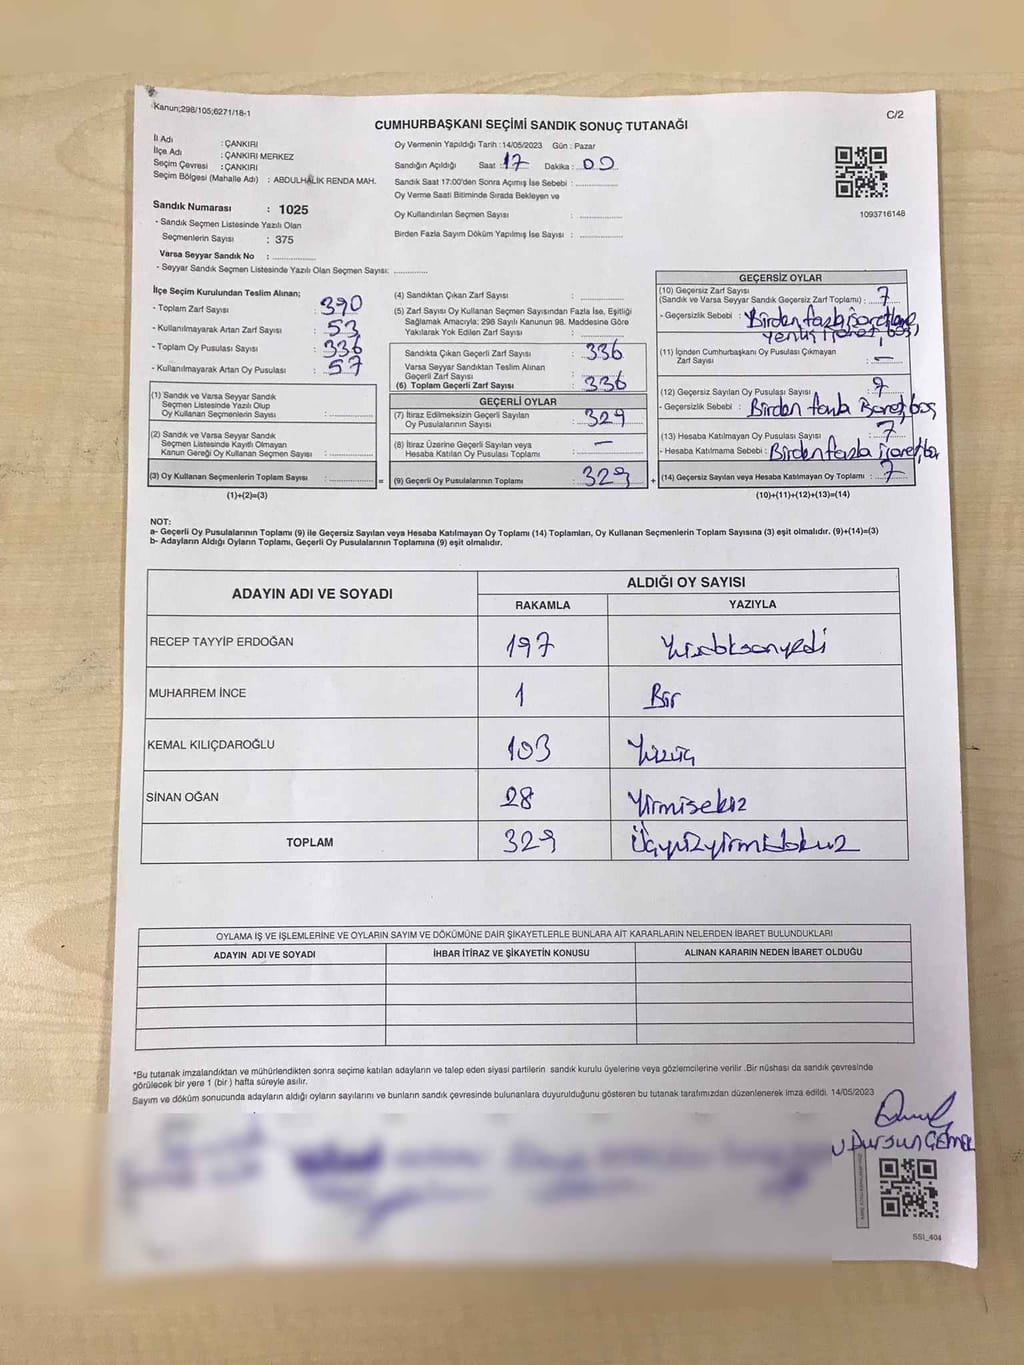 Kanun;298/105;6271/18-1
C/2
CUMHURBAŞKANI SEÇİMİ SANDIK SONUÇ TUTANAĞI
İl Adı : ÇANKIRI
İlçe Adı : ÇANKIRI MERKEZ
Seçim Çevresi : ÇANKIRI
Seçim Bölgesi (Mahalle Adı) : ABDULHALİK RENDA MAH.
Sandık Numarası : 1025
- Sandık Seçmen Listesinde Yazılı Olan
Seçmenlerin Sayısı : 375
Varsa Seyyar Sandık No : ............
- Seyyar Sandık Seçmen Listesinde Yazılı Olan Seçmen Sayısı: ............
Oy Vermenin Yapıldığı Tarih : 14/05/2023 Gün : Pazar
Sandığın Açıldığı Saat : 17 Dakika : 00
Sandık Saat 17:00'den Sonra Açımış İse Sebebi : ............
Oy Verme Saati Bitiminde Sırada Bekleyen ve
Oy Kullandırılan Seçmen Sayısı : ............
Birden Fazla Sayım Döküm Yapılmış İse Sayısı : ............
1093716148
İlçe Seçim Kurulundan Teslim Alınan;
- Toplam Zarf Sayısı : 390
- Kullanılmayarak Artan Zarf Sayısı : 53
- Toplam Oy Pusulası Sayısı : 336
- Kullanılmayarak Artan Oy Pusulası : 57
(1) Sandık ve Varsa Seyyar Sandık
Seçmen Listesinde Yazılı Olup
Oy Kullanan Seçmenlerin Sayısı : ............
(2) Sandık ve Varsa Seyyar Sandık
Seçmen Listesinde Kayıtlı Olmayan
Kanun Gereği Oy Kullanan Seçmen Sayısı : ............
(3) Oy Kullanan Seçmenlerin Toplam Sayısı : ............ =
(1)+(2)=(3)
(4) Sandıktan Çıkan Zarf Sayısı : ............
(5) Zarf Sayısı Oy Kullanan Seçmen Sayısından Fazla İse, Eşitliği
Sağlamak Amacıyla; 298 Sayılı Kanunun 98. Maddesine Göre
Yakılarak Yok Edilen Zarf Sayısı : ............
Sandıkta Çıkan Geçerli Zarf Sayısı : 336
Varsa Seyyar Sandıktan Teslim Alınan
Geçerli Zarf Sayısı : ............
(6) Toplam Geçerli Zarf Sayısı : 336
GEÇERLİ OYLAR
(7) İtiraz Edilmeksizin Geçerli Sayılan
Oy Pusulalarının Sayısı : 329
(8) İtiraz Üzerine Geçerli Sayılan veya
Hesaba Katılan Oy Pusulası Toplamı : —
(9) Geçerli Oy Pusulalarının Toplamı : 329 +
GEÇERSİZ OYLAR
(10) Geçersiz Zarf Sayısı
(Sandık ve Varsa Seyyar Sandık Geçersiz Zarf Toplamı) : 7
- Geçersizlik Sebebi : Birden fazla işaretleme
boş,
(11) İçinden Cumhurbaşkanı Oy Pusulası Çıkmayan
Zarf Sayısı : —
(12) Geçersiz Sayılan Oy Pusulası Sayısı : 7
- Geçersizlik Sebebi : Birden fazla İşaret, boş
(13) Hesaba Katılmayan Oy Pusulası Sayısı : 7
- Hesaba Katılmama Sebebi : Birden fazla işaret,
(14) Geçersiz Sayılan veya Hesaba Katılmayan Oy Toplamı : 7
(10)+(11)+(12)+(13)=(14)
NOT:
a- Geçerli Oy Pusulalarının Toplamı (9) ile Geçersiz Sayılan veya Hesaba Katılmayan Oy Toplamı (14) Toplamları, Oy Kullanan Seçmenlerin Toplam Sayısına (3) eşit olmalıdır. (9)+(14)=(3)
b- Adayların Aldığı Oyların Toplamı, Geçerli Oy Pusulalarının Toplamına (9) eşit olmalıdır.
ADAYIN ADI VE SOYADI ALDIĞI OY SAYISI
RAKAMLA YAZIYLA
RECEP TAYYİP ERDOĞAN 197 Yüzdoksanyedi
MUHARREM İNCE 1 Bir
KEMAL KILIÇDAROĞLU 103 Yüzüç
SİNAN OĞAN 28 Yirmisekiz
TOPLAM 329 Üçyüzyirmidokuz
OYLAMA İŞ VE İŞLEMLERİNE VE OYLARIN SAYIM VE DÖKÜMÜNE DAİR ŞİKAYETLERLE BUNLARA AİT KARARLARIN NELERDEN İBARET BULUNDUKLARI
ADAYIN ADI VE SOYADI İHBAR İTİRAZ VE ŞİKAYETİN KONUSU ALINAN KARARIN NEDEN İBARET OLDUĞU
*Bu tutanak imzalandıktan ve mühürlendikten sonra seçime katılan adayların ve talep eden siyasi partilerin sandık kurulu üyelerine veya gözlemcilerine verilir .Bir nüshası da sandık çevresinde
görülecek bir yere 1 (bir ) hafta süreyle asılır.
Sayım ve döküm sonucunda adayların aldığı oyların sayılarını ve bunların sandık çevresinde bulunanlara duyurulduğunu gösteren bu tutanak tarafımızdan düzenlenerek imza edildi. 14/05/2023
Dursun GEMEL
SSI_404